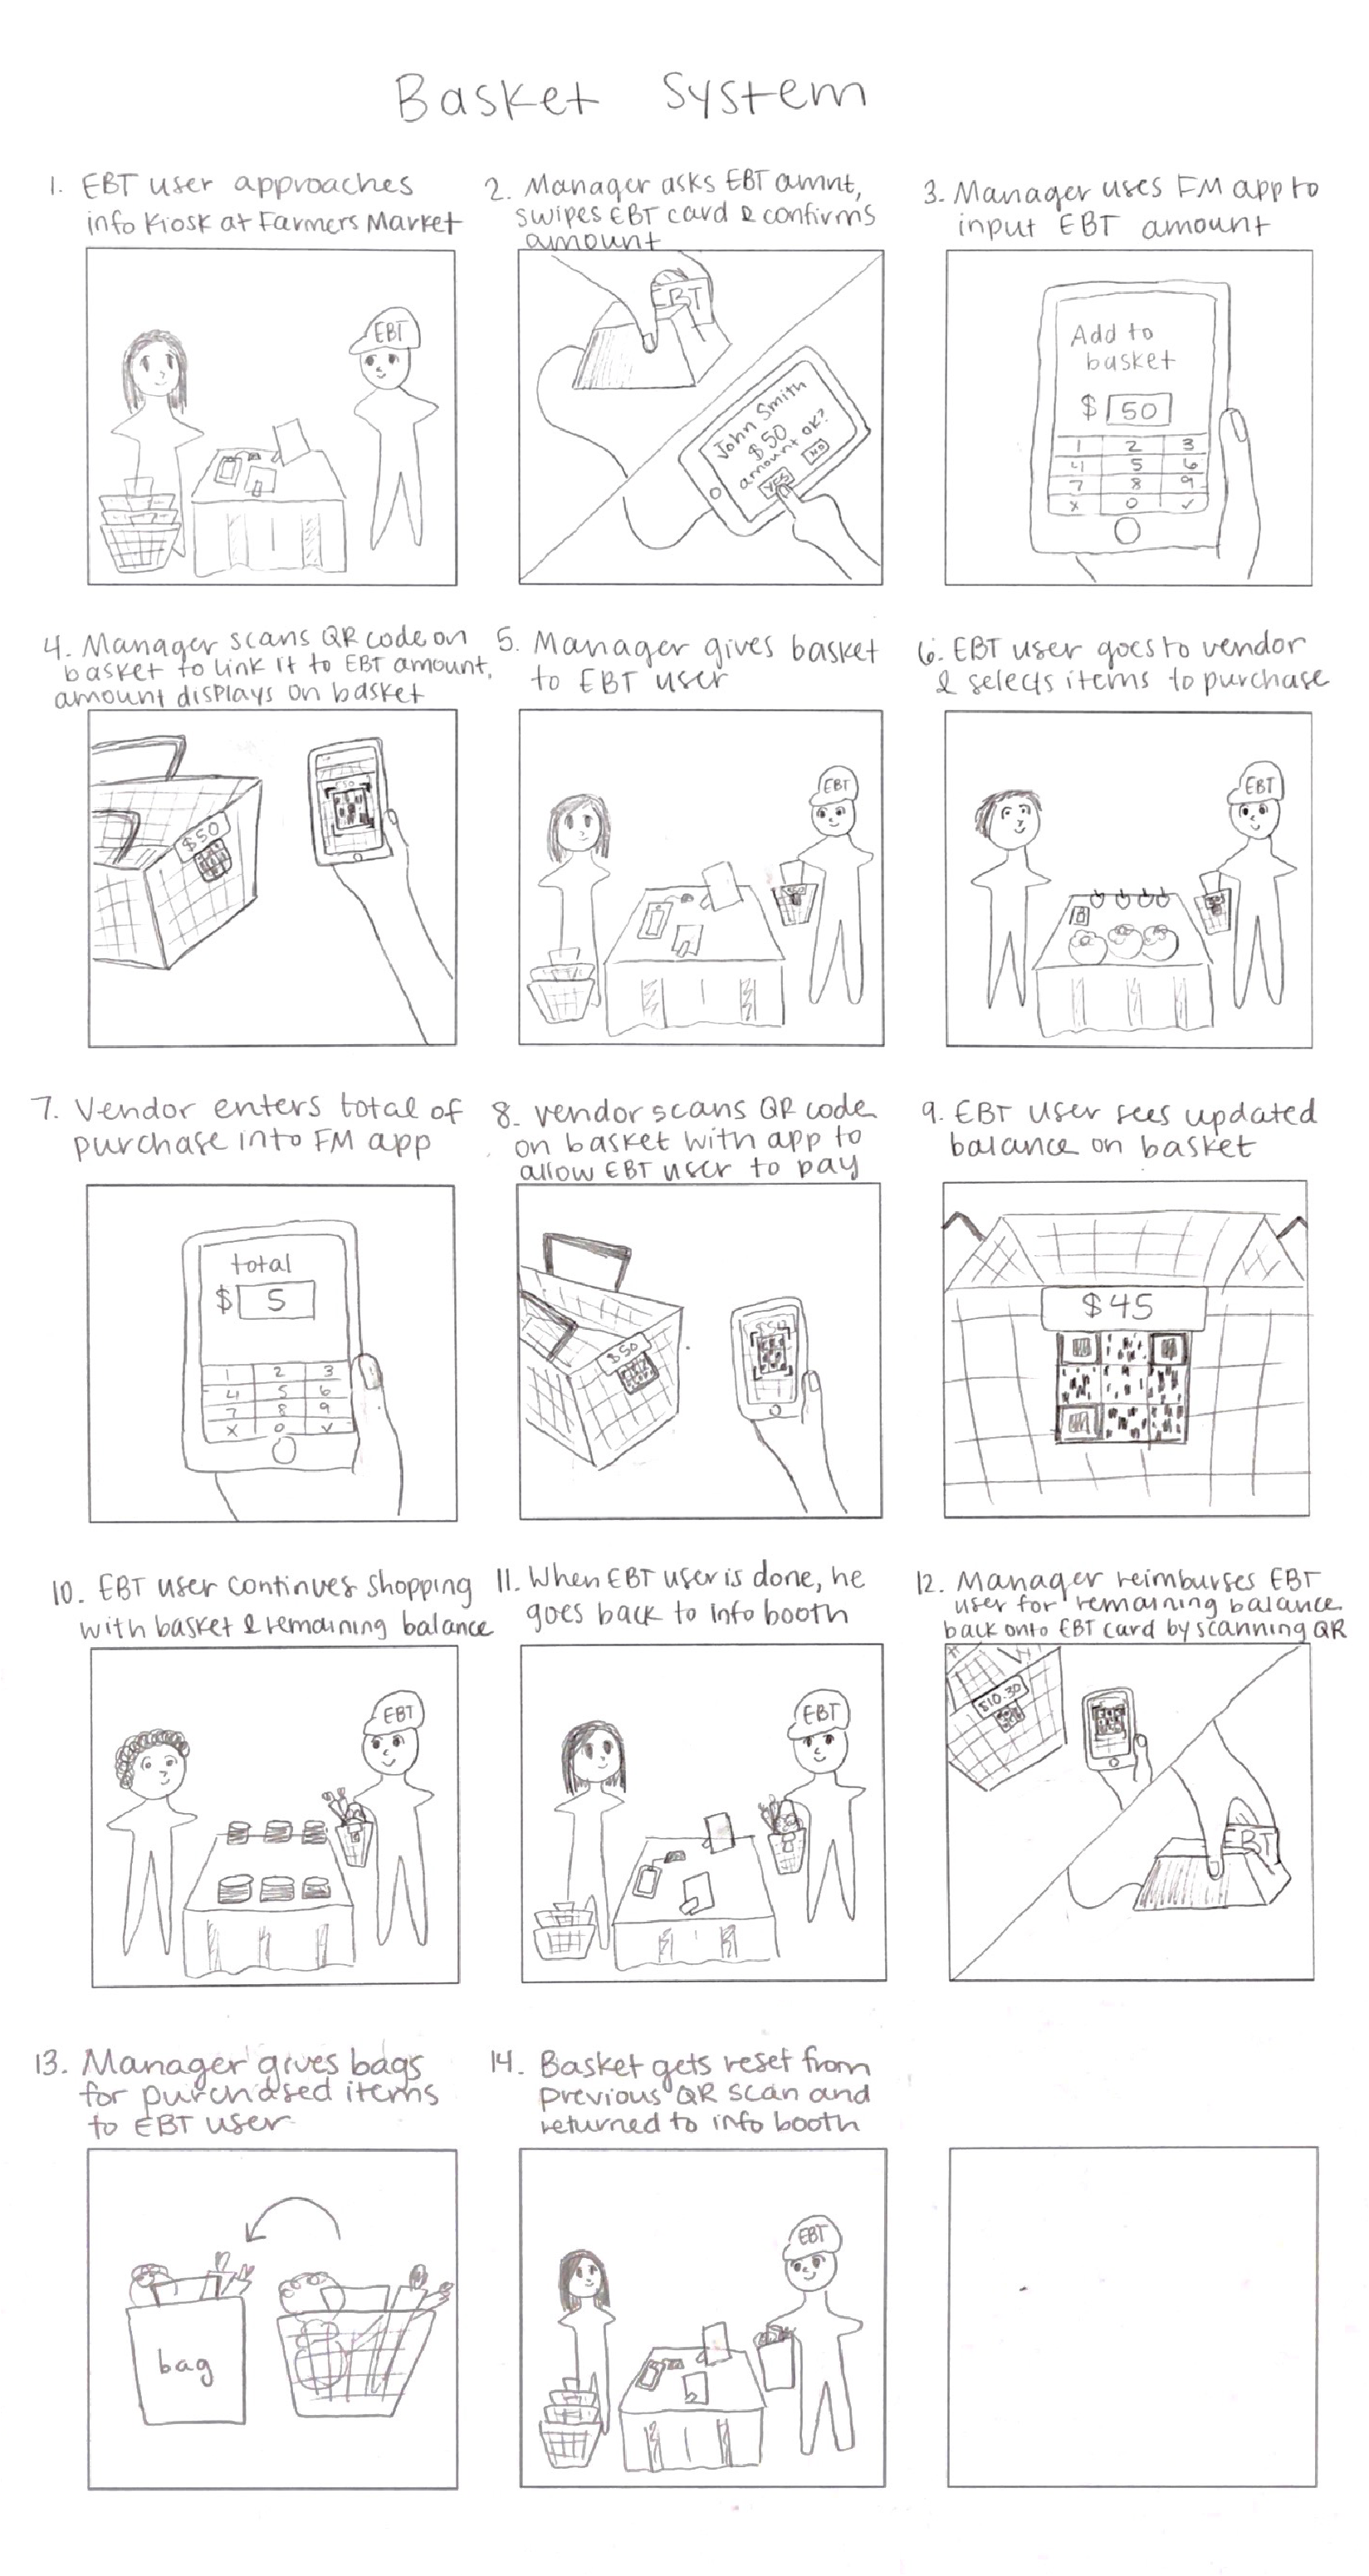 Basket System
1. EBT user approaches
info kiosk at Farmers Market
EBT
2. Manager asks EBT amnt,
swipes EBT card & confirms
amount
EBT
John Smith
$50
amount OK?
YES NO
3. Manager uses FM app to
input EBT amount
Add to
basket
$ 50
1 2 3
4 5 6
7 8 9
x 0 ✓
4. Manager scans QR code on
basket to link it to EBT amount,
amount displays on basket
$50
$50
5. Manager gives basket
to EBT user
EBT
6. EBT user goes to vendor
& selects items to purchase
EBT
7. Vendor enters total of
purchase into FM app
total
$ 5
1 2 3
4 5 6
7 8 9
x 0 ✓
8. vendor scans QR code
on basket with app to
allow EBT user to pay
$50
$50
9. EBT user sees updated
balance on basket
$45
10. EBT user continues shopping
with basket & remaining balance
EBT
11. When EBT user is done, he
goes back to info booth
EBT
12. Manager reimburses EBT
user for remaining balance
back onto EBT card by scanning QR
$10.30
EBT
13. Manager gives bags
for purchased items
to EBT user
bag
14. Basket gets reset from
previous QR scan and
returned to info booth
EBT